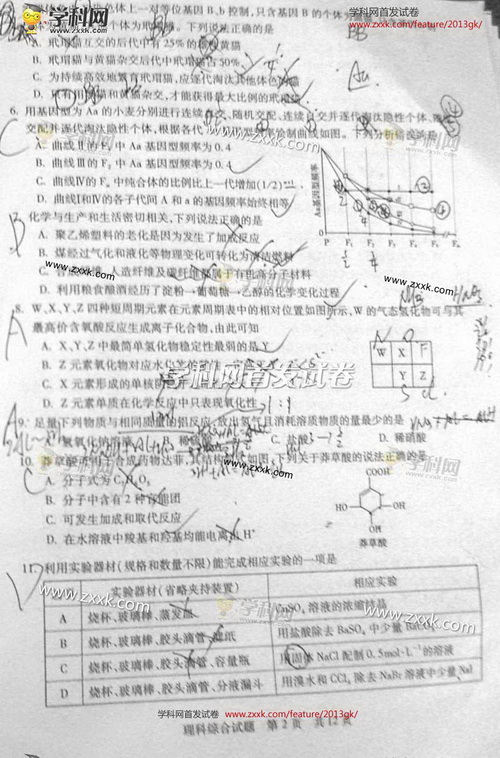 学科网首发试卷 www.zxxk.com/feature/2013gk/
色体上一对等位基因B、b控制,只含基因B的个体为
个体为玳瑁猫。下列说法正确的是
A. 玳瑁猫互交的后代中有25%的雄性黄猫
B. 玳瑁猫与黄猫杂交后代中玳瑁猫占50%
C. 为持续高效地繁育玳瑁猫,应逐代淘汰其他体色的猫
D. 只有用黑猫和黄猫杂交,才能获得最大比例的玳瑁猫
6. 用基因型为Aa的小麦分别进行连续自交、随机交配、连续自交并逐代淘汰隐性个体、随机
交配并逐代淘汰隐性个体,根据各代Aa基因型频率绘制曲线如图。下列分析错误的是
A. 曲线Ⅱ的F₃中Aa基因型频率为0.4
B. 曲线Ⅲ的F₂中Aa基因型频率为0.4
C. 曲线Ⅳ的Fₙ中纯合体的比例比上一代增加(1/2)ⁿ⁺¹
D. 曲线Ⅰ和Ⅳ的各子代间A和a的基因频率始终相等
Aa基因型频率
P F₁ F₂ F₃ F₄ Fₙ
7. 化学与生产和生活密切相关,下列说法正确的是
A. 聚乙烯塑料的老化是因为发生了加成反应
B. 煤经过气化和液化等物理变化可转化为清洁燃料
C. 合成纤维、人造纤维及碳纤维都属于有机高分子材料
D. 利用粮食酿酒经历了淀粉→葡萄糖→乙醇的化学变化过程
8. W、X、Y、Z四种短周期元素在元素周期表中的相对位置如图所示,W的气态氢化物可与其
最高价含氧酸反应生成离子化合物,由此可知
A. X、Y、Z中最简单氢化物稳定性最弱的是Y
B. Z元素氧化物对应水化物的
C. X元素形成的单核阴
D. Z元素单质在化学反应中只表现氧化性
W X
9. 足量下列物质与相同质量的铝反应,放出氢气且消耗溶质物质的量最少的是
A. 氢氧化钠溶液 B. 稀硫酸 C. 盐酸 D. 稀硝酸
10. 莽草酸可用于合成药物达菲,其结构简式如图,下列关于莽草酸的说法正确的是
A. 分子式为
B. 分子中含有2种官能团
C. 可发生加成和取代反应
D. 在水溶液中羧基和羟基均能电离出H⁺
COOH
HO OH
OH
莽草酸
11. 利用实验器材(规格和数量不限)能完成相应实验的一项是
实验器材(省略夹持装置) 相应实验
A 烧杯、玻璃棒、蒸发皿 CuSO₄溶液的浓缩结晶
B 烧杯、玻璃棒、胶头滴管、滤纸 用盐酸除去BaSO₄中少量BaCO₃
C 烧杯、玻璃棒、胶头滴管、容量瓶 用固体NaCl配制0.5mol·L⁻¹的溶液
D 烧杯、玻璃棒、胶头滴管、分液漏斗 用溴水和CCl₄除去NaBr溶液中少量NaI
理科综合试题 第2页 共12页
学科网首发试卷 www.zxxk.com/feature/2013gk/